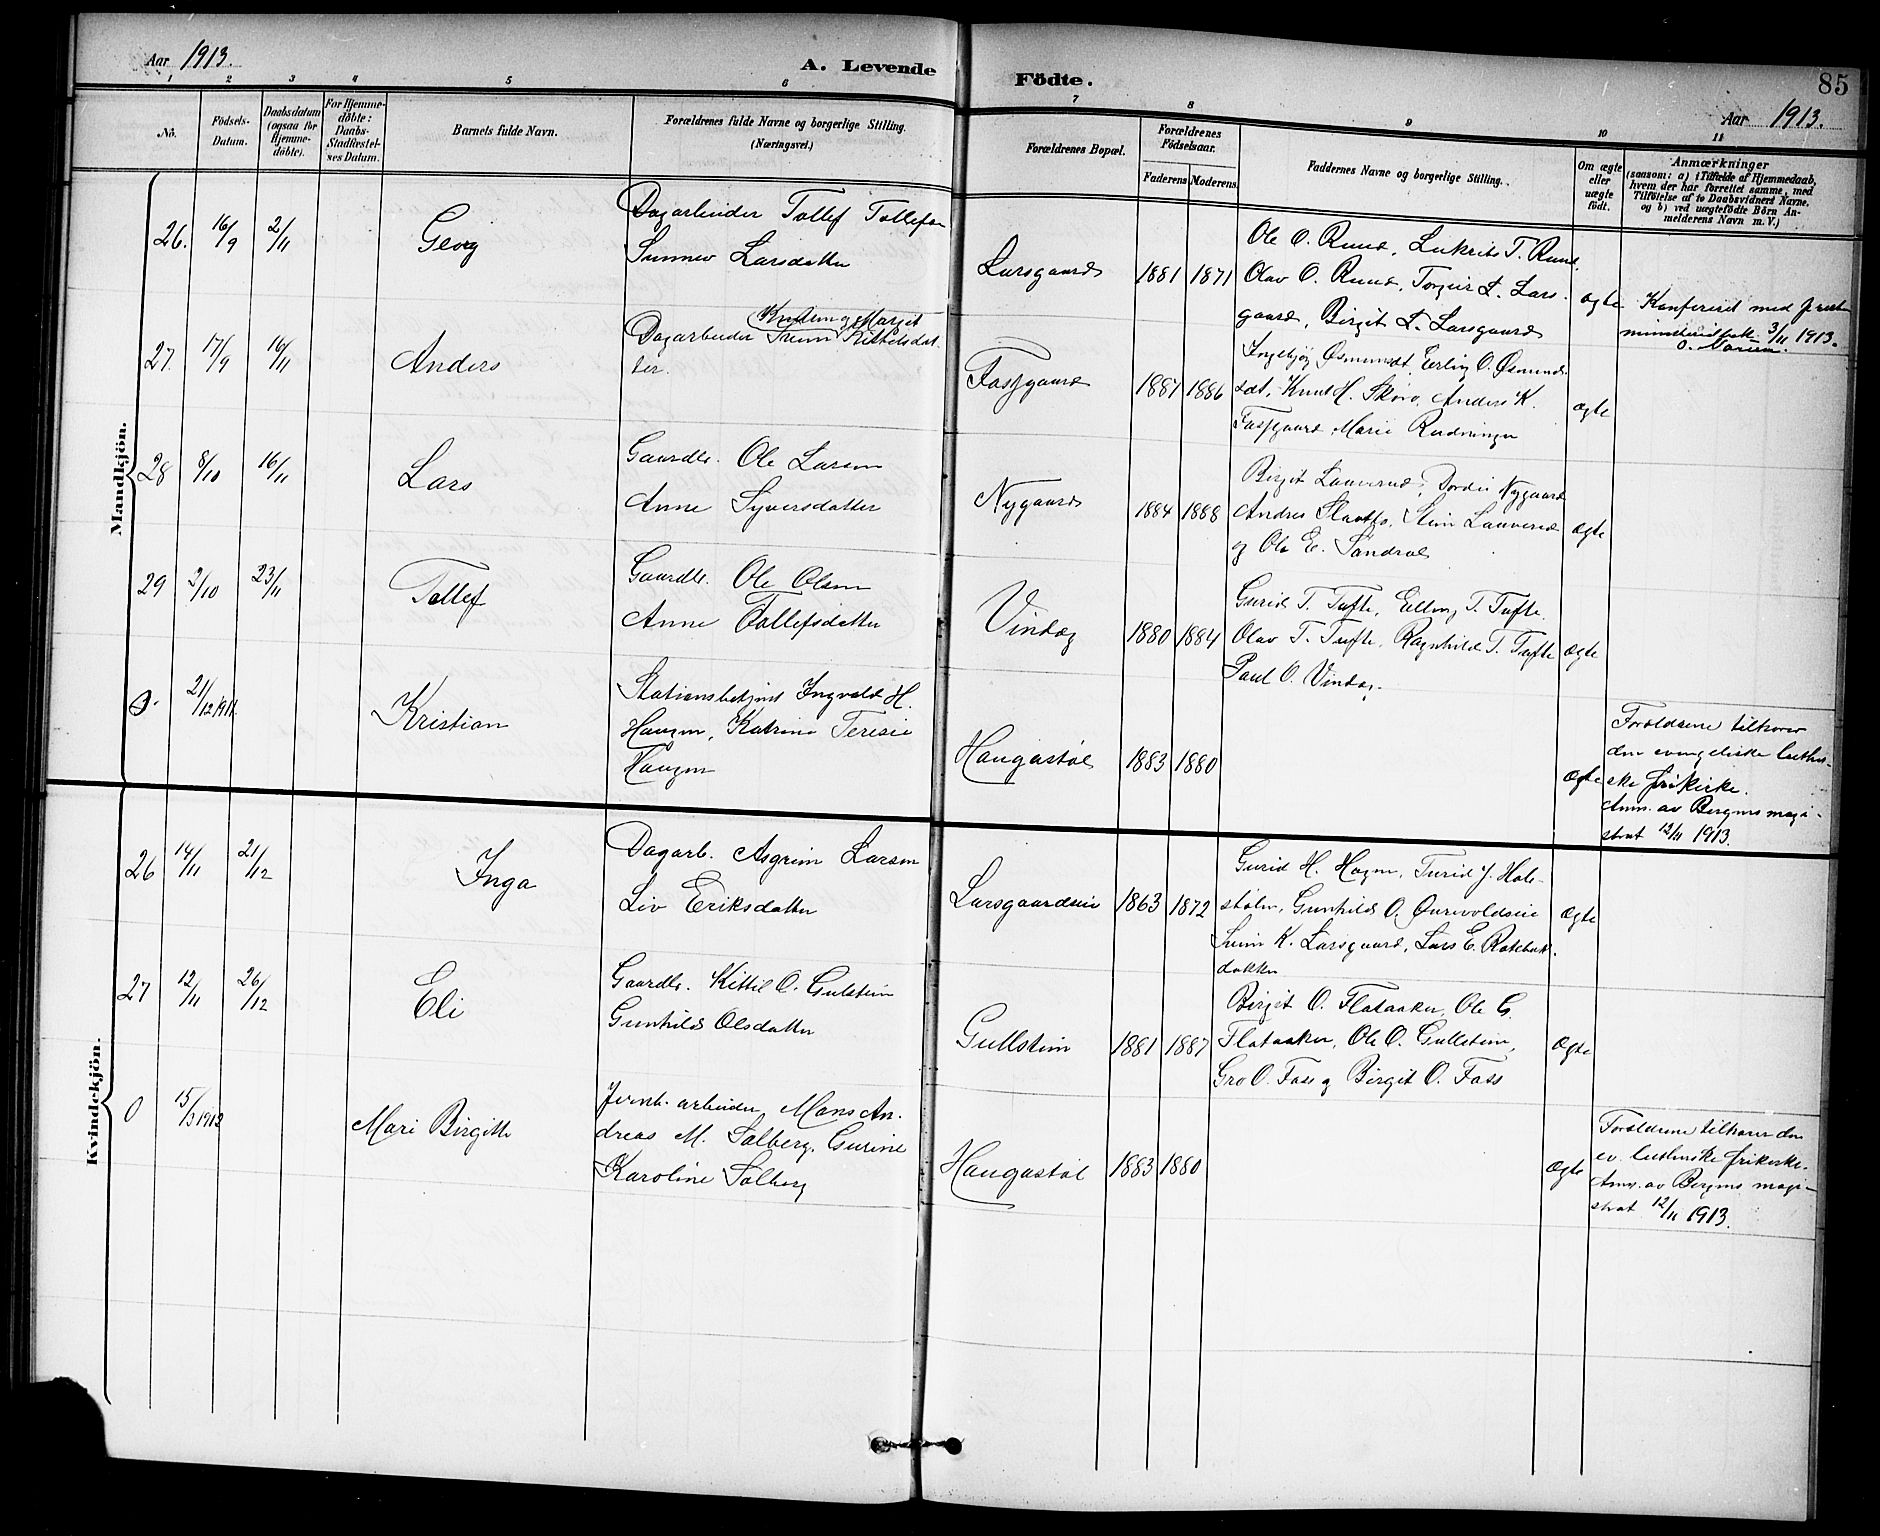 Aar 1913.
A. Levende Födte.
85
Aar 1913.
1 2 3 4 5 6 7 8 9 10 11
No.
Födsels-
Datum.
Daabsdatum
(ogsaa for
Hjemme-
döbte).
For Hjemme-
döbte:
Daabs-
Stadfæstel-
ses Datum.
Barnets fulde Navn.
Forældrenes fulde Navne og borgerlige Stilling.
(Næringsvei.)
Forældrenes Bopæl.
Forældrenes
Födselsaar.
Faderens Moderens.
Faddernes Navne og borgerlige Stilling.
Om ægte
eller
uægte
födt.
Anmærkninger
(saasom: a) i Tilfælde af Hjemmedaab,
hvem der har forrettet samme, med
Tilföielse af to Daabsvidners Navne,
og b) ved uægtefödte Börn An-
melderens Navn m. V.)
Mandkjön.
26. 16/9 2/11 Georg
Dagarbeider Tollef Tollefsen
Sunnev Larsdatter
Larsgaard 1881 1871
Ole O. Ruud, Lukrits T. Ruud,
Olav O. Ruud, Torgeir L. Lars-
gaard, Birgit L. Larsgaard
ægte
Konferert med prest
3/11 1913.
27. 17/9 16/11 Anders
Knudsen og Margit
Dagarbeider Svein Kittelsdat-
ter.
Fossgaard 1887 1886
Ingebjøg Øsmundsdt, Erling O. Øsmunds
dat, Knut H. Skoro, Anders K.
Fossgaard, Marie Rudningen
ægte
28 8/10 16/11 Lars
Gaardbr. Ole Larsen
Anne Syversdatter
Nygaard 1884 1888
Birgit Lauverud, Dordei Nygaard
Andres Slaatto, Svein Lauverud
og Ola E. Sandvol
ægte
29 2/10 23/11 Tollef
Gaardbr. Ole Olsen
Anne Tollefsdatter
Vindeg 1880 1884
Gurid T. Tufte, Elling T. Tufte.
Olav T. Tufte, Ragnhild T. Tufte
Paul O. Vindeg.
ægte
0. 21/12 1911. Kristian
Stationsbetjent Ingvald H.
Haugen, Katrine Teresie
Haugen
Haugastøl 1883 1880
ægte
Forældrene tilhører
den evangeliske luther-
ske frikirke.
Anm. av Bergens magi-
strat 12/11 1913.
Kvindekjön.
26 14/11 21/12 Inga
Dagarb. Asgrim Larsen
Liv Eriksdatter
Larsgaardseie 1863 1872
Gurid H. Hagen, Turid J. Hol-
stølen, Gunhild O. Ourevoldseie
Svein K. Larsgaard, Lars E.
ægte
27 12/11 26/12 Eli
Gaardbr. Kittil O. Gulstein
Gunhild Olsdatter
Gullstein 1881 1887
Birgit O. Flataaker, Ole G.
Flataaker, Ole O. Gullstein,
Gro O. Foss og Birgit O. Foss
ægte
0 15/3 1913 Mari Birgitte
Jernb. arbeider Mons An-
dreas M. Solberg, Gurine
Karoline Solberg
Haugastøl 1883 1880
ægte
Forældrene tilhører den
ev. lutherske frikirke.
Anm. av Bergens magi-
strat 12/11 1913.